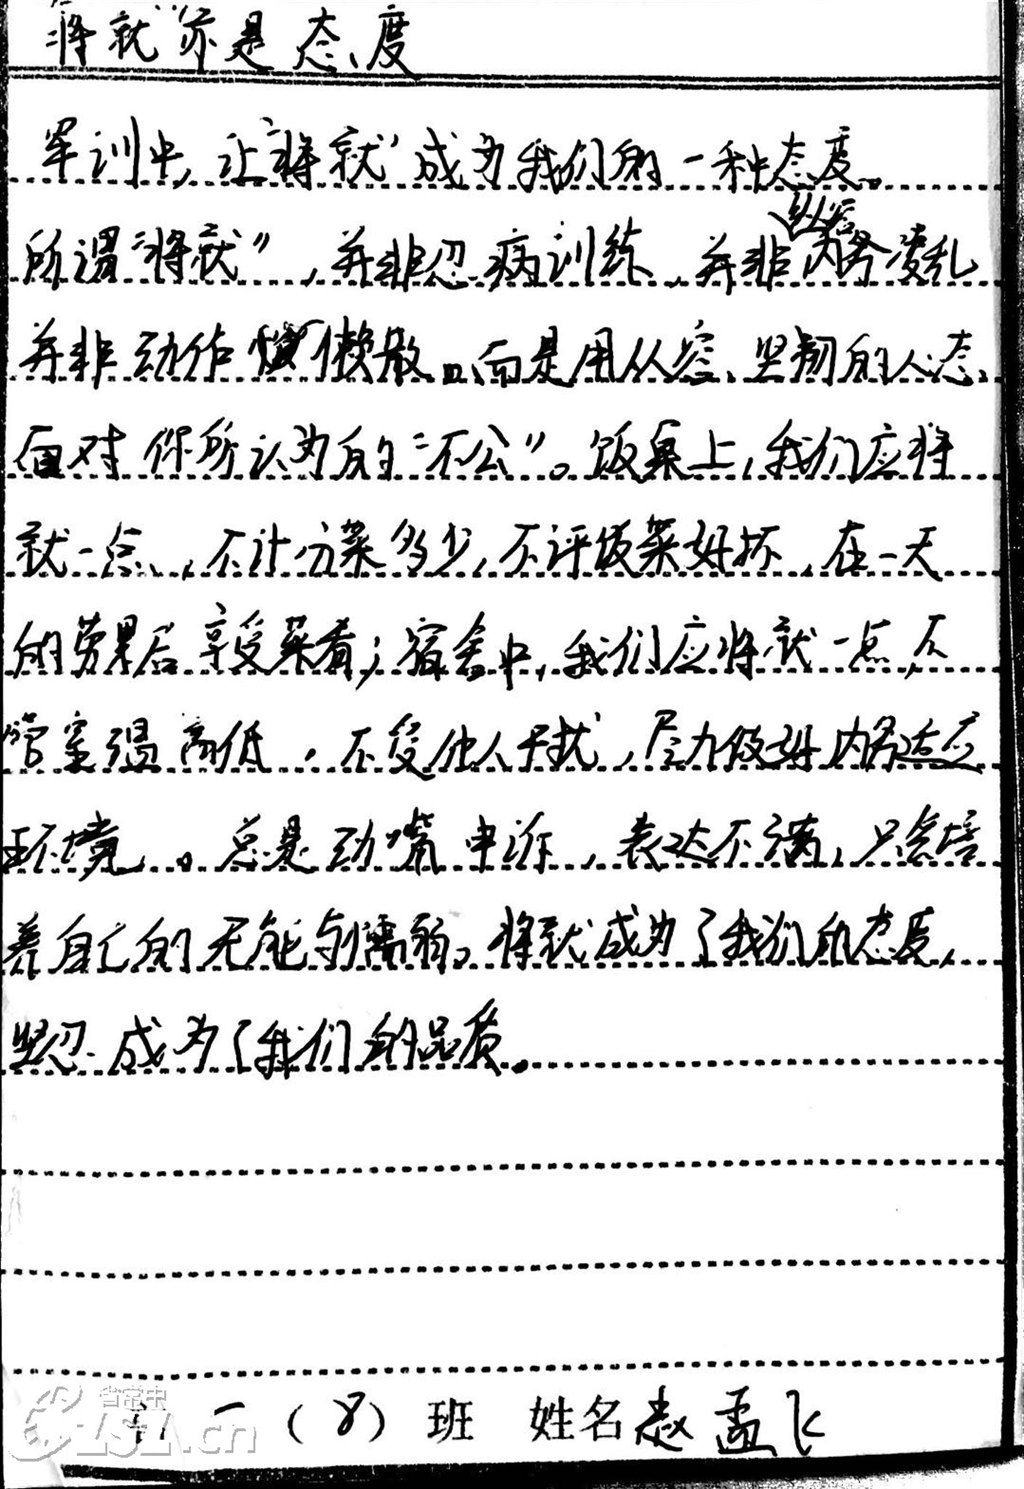 “将就”亦是态度
军训中，让“将就”成为我们的一种态度。
所谓“将就”，并非忍病训练，并非纵容内务凌乱
并非动作懒散。而是用从容、坚韧的心态、
面对你所认为的“不公”。饭桌上，我们应将
就一点，不计分菜多少，不评饭菜好坏，在一天
的劳累后享受菜肴；宿舍中，我们应将就一点，不
管室温高低，不受他人干扰，尽力做好内务适应
环境。总是动嘴申诉，表达不满，只会培
养自己的无能与懦弱。将就成为了我们的态度，
坚忍成为了我们的品质。
高一（8）班 姓名赵孟飞
省常中
CZSZ.cn